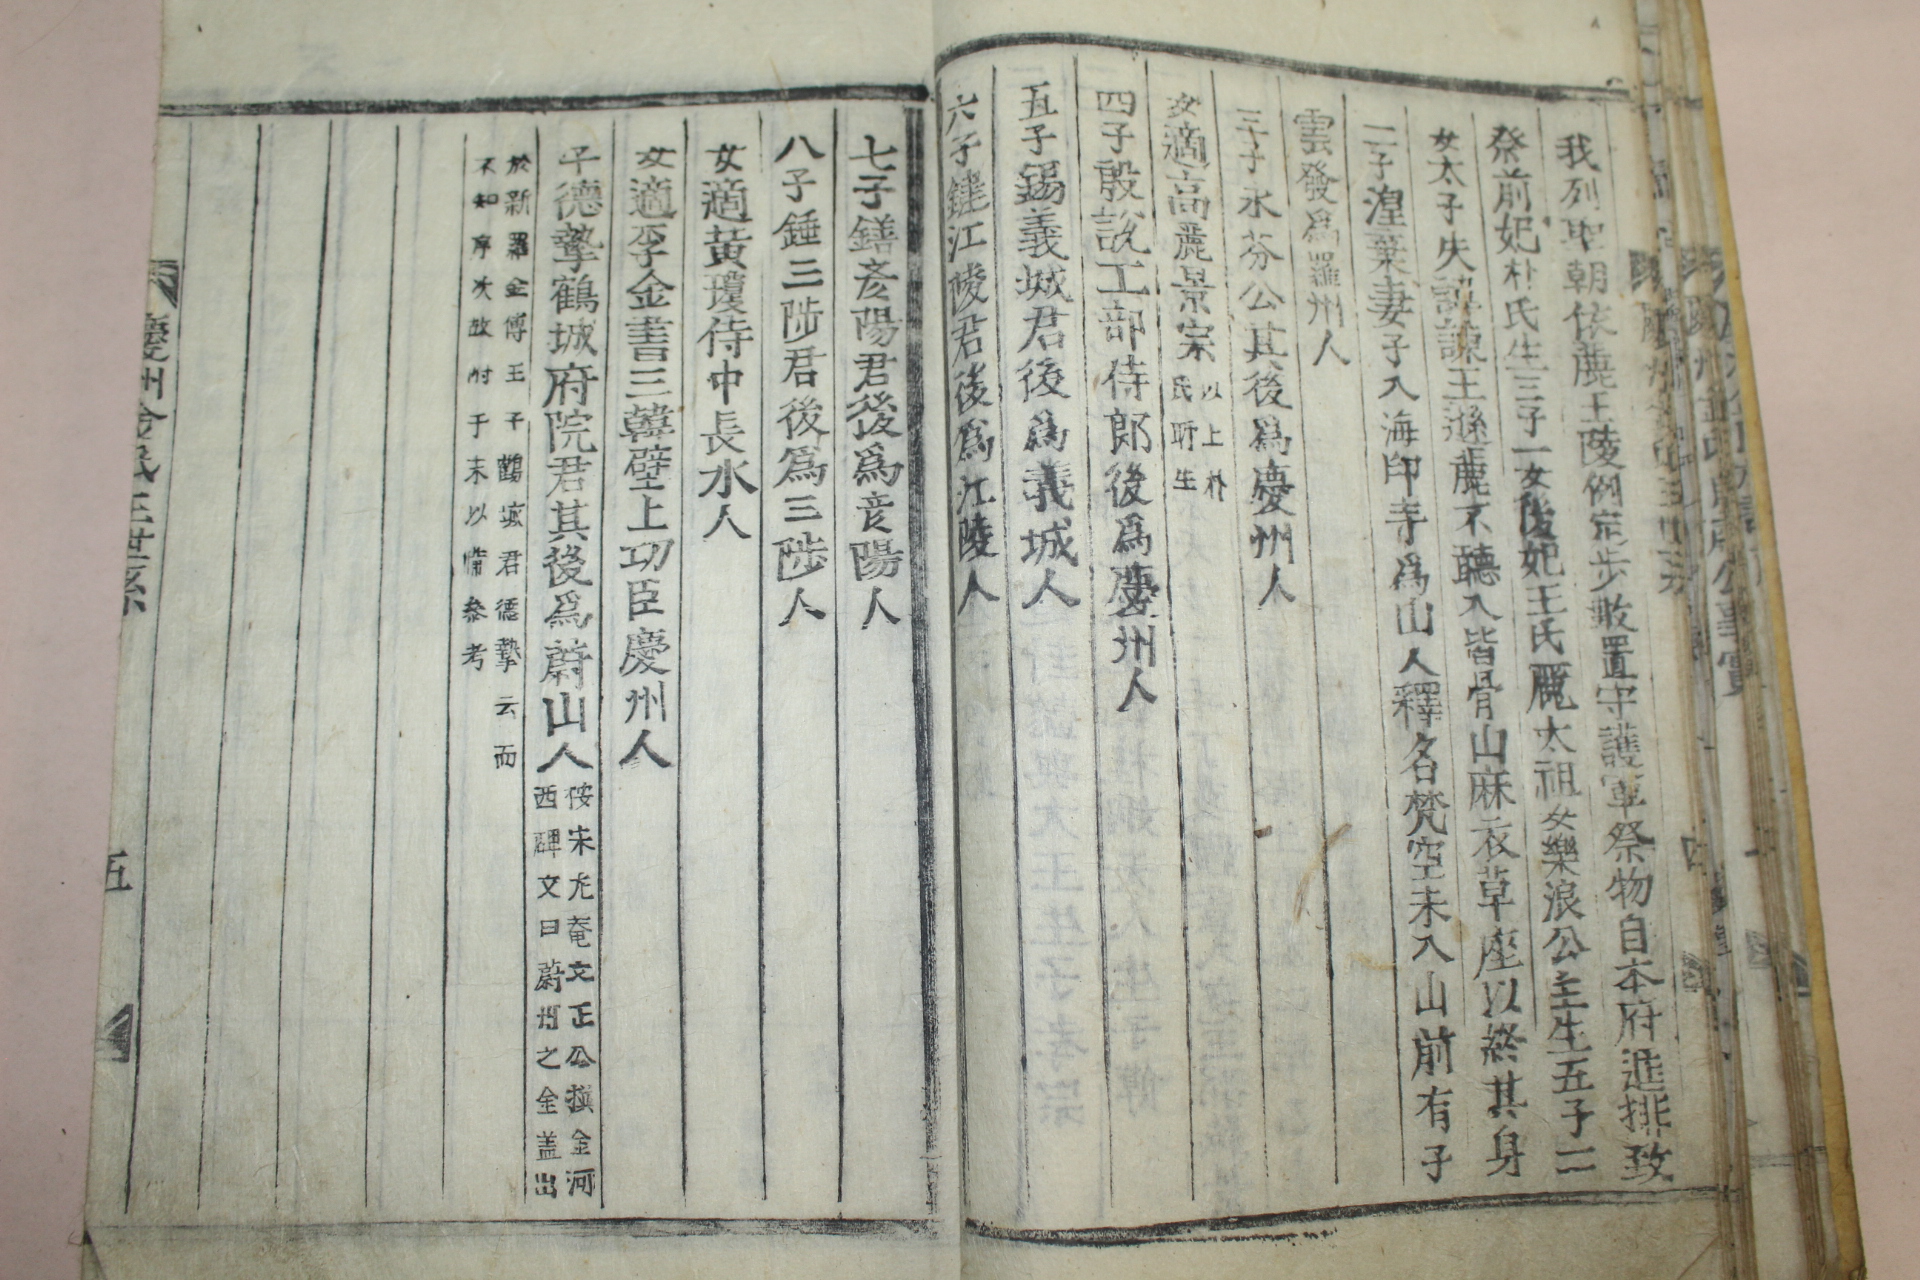 我列聖朝依麗王陵例定步數置守護軍祭物自本府進排致
祭前妃朴氏生三子一女後妃王氏麗太祖女樂浪公主生五子二
女太子失諱諫王遜麗不聽入皆骨山麻衣草座以終其身
二子湟棄妻子入海印寺爲山人釋名梵空未入山前有子
雲發爲羅州人
三子永芬公其後爲慶州人
女適高麗景宗以上朴氏所生
四子殷說工部侍郎後爲慶州人
五子錫義城君後爲義城人
六子鍵江陵君後爲江陵人
七子鐥彦陽君後爲彦陽人
八子錘三陟君後爲三陟人
女適黃瓊侍中長水人
女適李金書三韓壁上功臣慶州人
子德摯鶴城府院君其後爲蔚山人按宋尤菴文正公撰金河西碑文曰蔚州之金盖出
於新羅金傅王子鶴城君德摯云而
不知序次故附于末以備參考
慶州金氏王世系
五